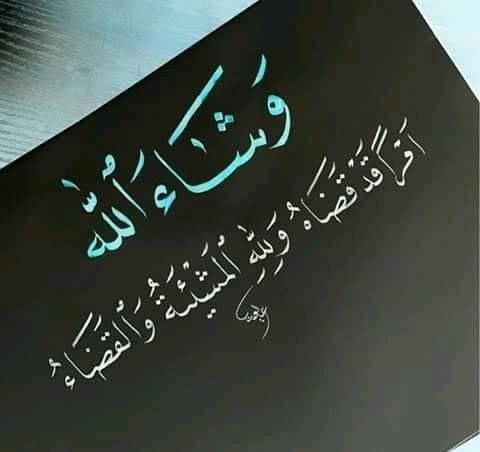 وَشَاءَ ٱللَّه
أَمْرًا قَدْ قَضَاهُ وَلِلَّهِ الْمَشِيئَةُ وَالْقَضَاءُ